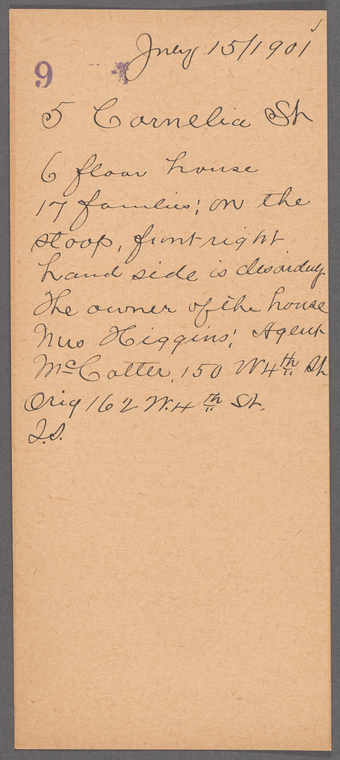 July 15/1901
9
5 Cornelia St
6 floor house
17 families; on the
stoop, front right
hand side is disorderly
The owner of the house
Mrs Higgins; Agent
McCotter, 150 W 4th St
Orig 162 W. 4th St.